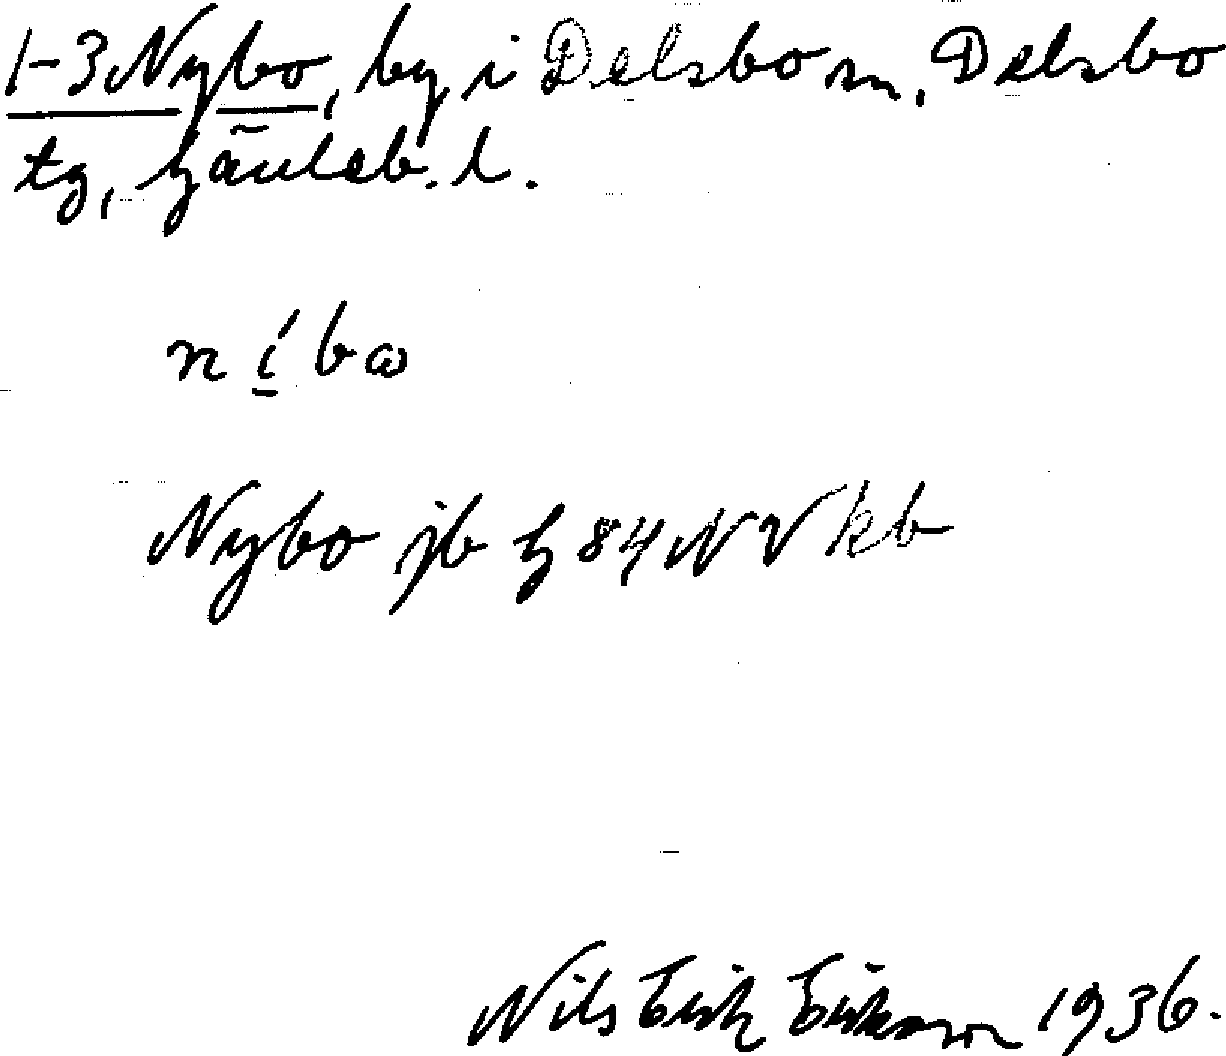 1-3 Nybo, by i Delsbo sn, Delsbo
tg, Gävleb. l.
níbω
Nybo jb 84 NV kb
Nils Erik Erikson 1936.